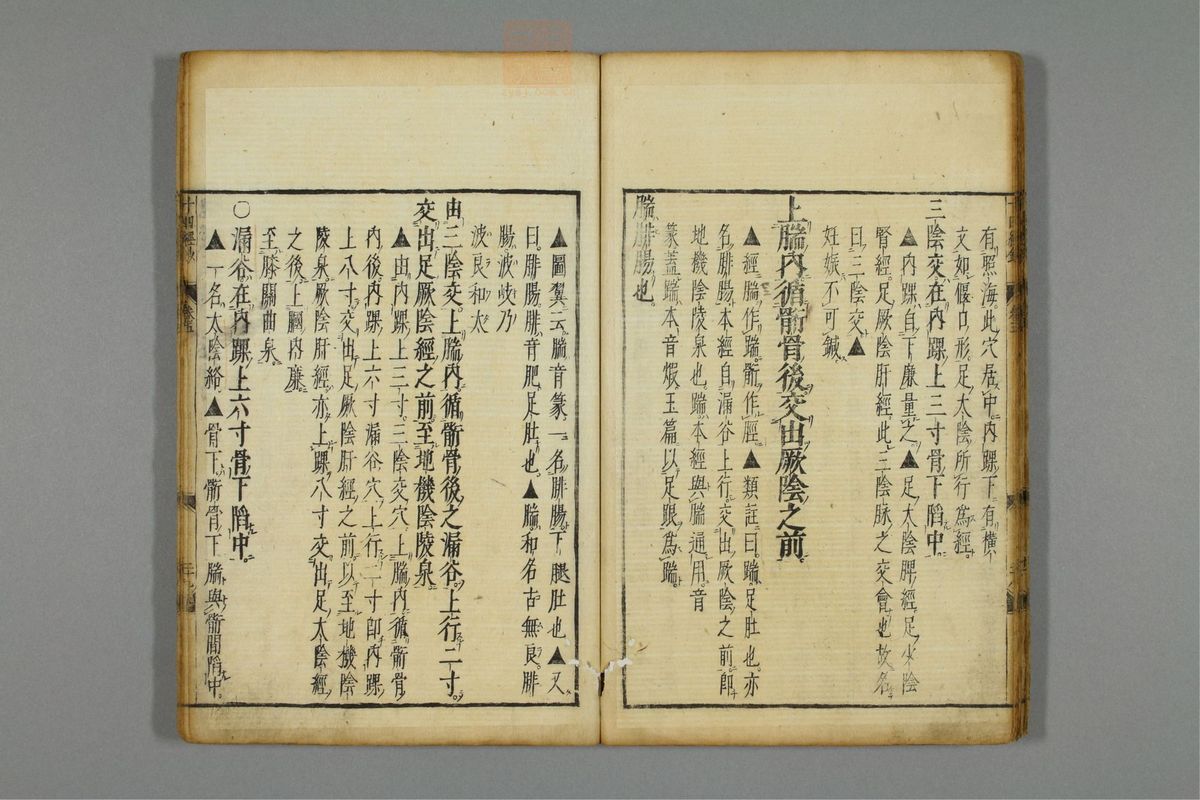 有照海此穴居中内踝下有横
文如偃口形足太陰所行為經
三陰交在内踝上三寸骨下陷中
▲内踝自下廉量之▲足太陰脾經足少陰
腎經足厥陰肝經此三陰脉之交會也故名
曰三陰交▲
妊娠不可鍼
上腨内循骭骨後交出厥陰之前
▲經腨作踹骭作脛▲類註曰踹足肚也亦
名腓腸本經自漏谷上行交出厥陰之前即
地機陰陵泉也踹本經與腨通用音
篆蓋踹本音煆玉篇以足跟為踹
腨腓腸也
▲圖翼云腨音篆一名腓腸下腿肚也▲又
曰腓腸腓音肥足肚也▲腨和名古無良腓
腸波岐乃
波良和太
由三陰交上腨内循骭骨後之漏谷上行二寸
交出足厥陰經之前至地機陰陵泉
▲由内踝上三寸三陰交穴上腨内循骭骨
内後内踝上六寸漏谷穴上行二寸即内踝
上八寸交出足厥陰肝經之前以至地機陰
陵泉厥陰肝經亦上踝八寸交出足太陰經
之後上膕内廉
至膝關曲泉
〇漏谷在内踝上六寸骨下陷中
▲一名太陰絡▲骨下骭骨下腨與骭間陷中